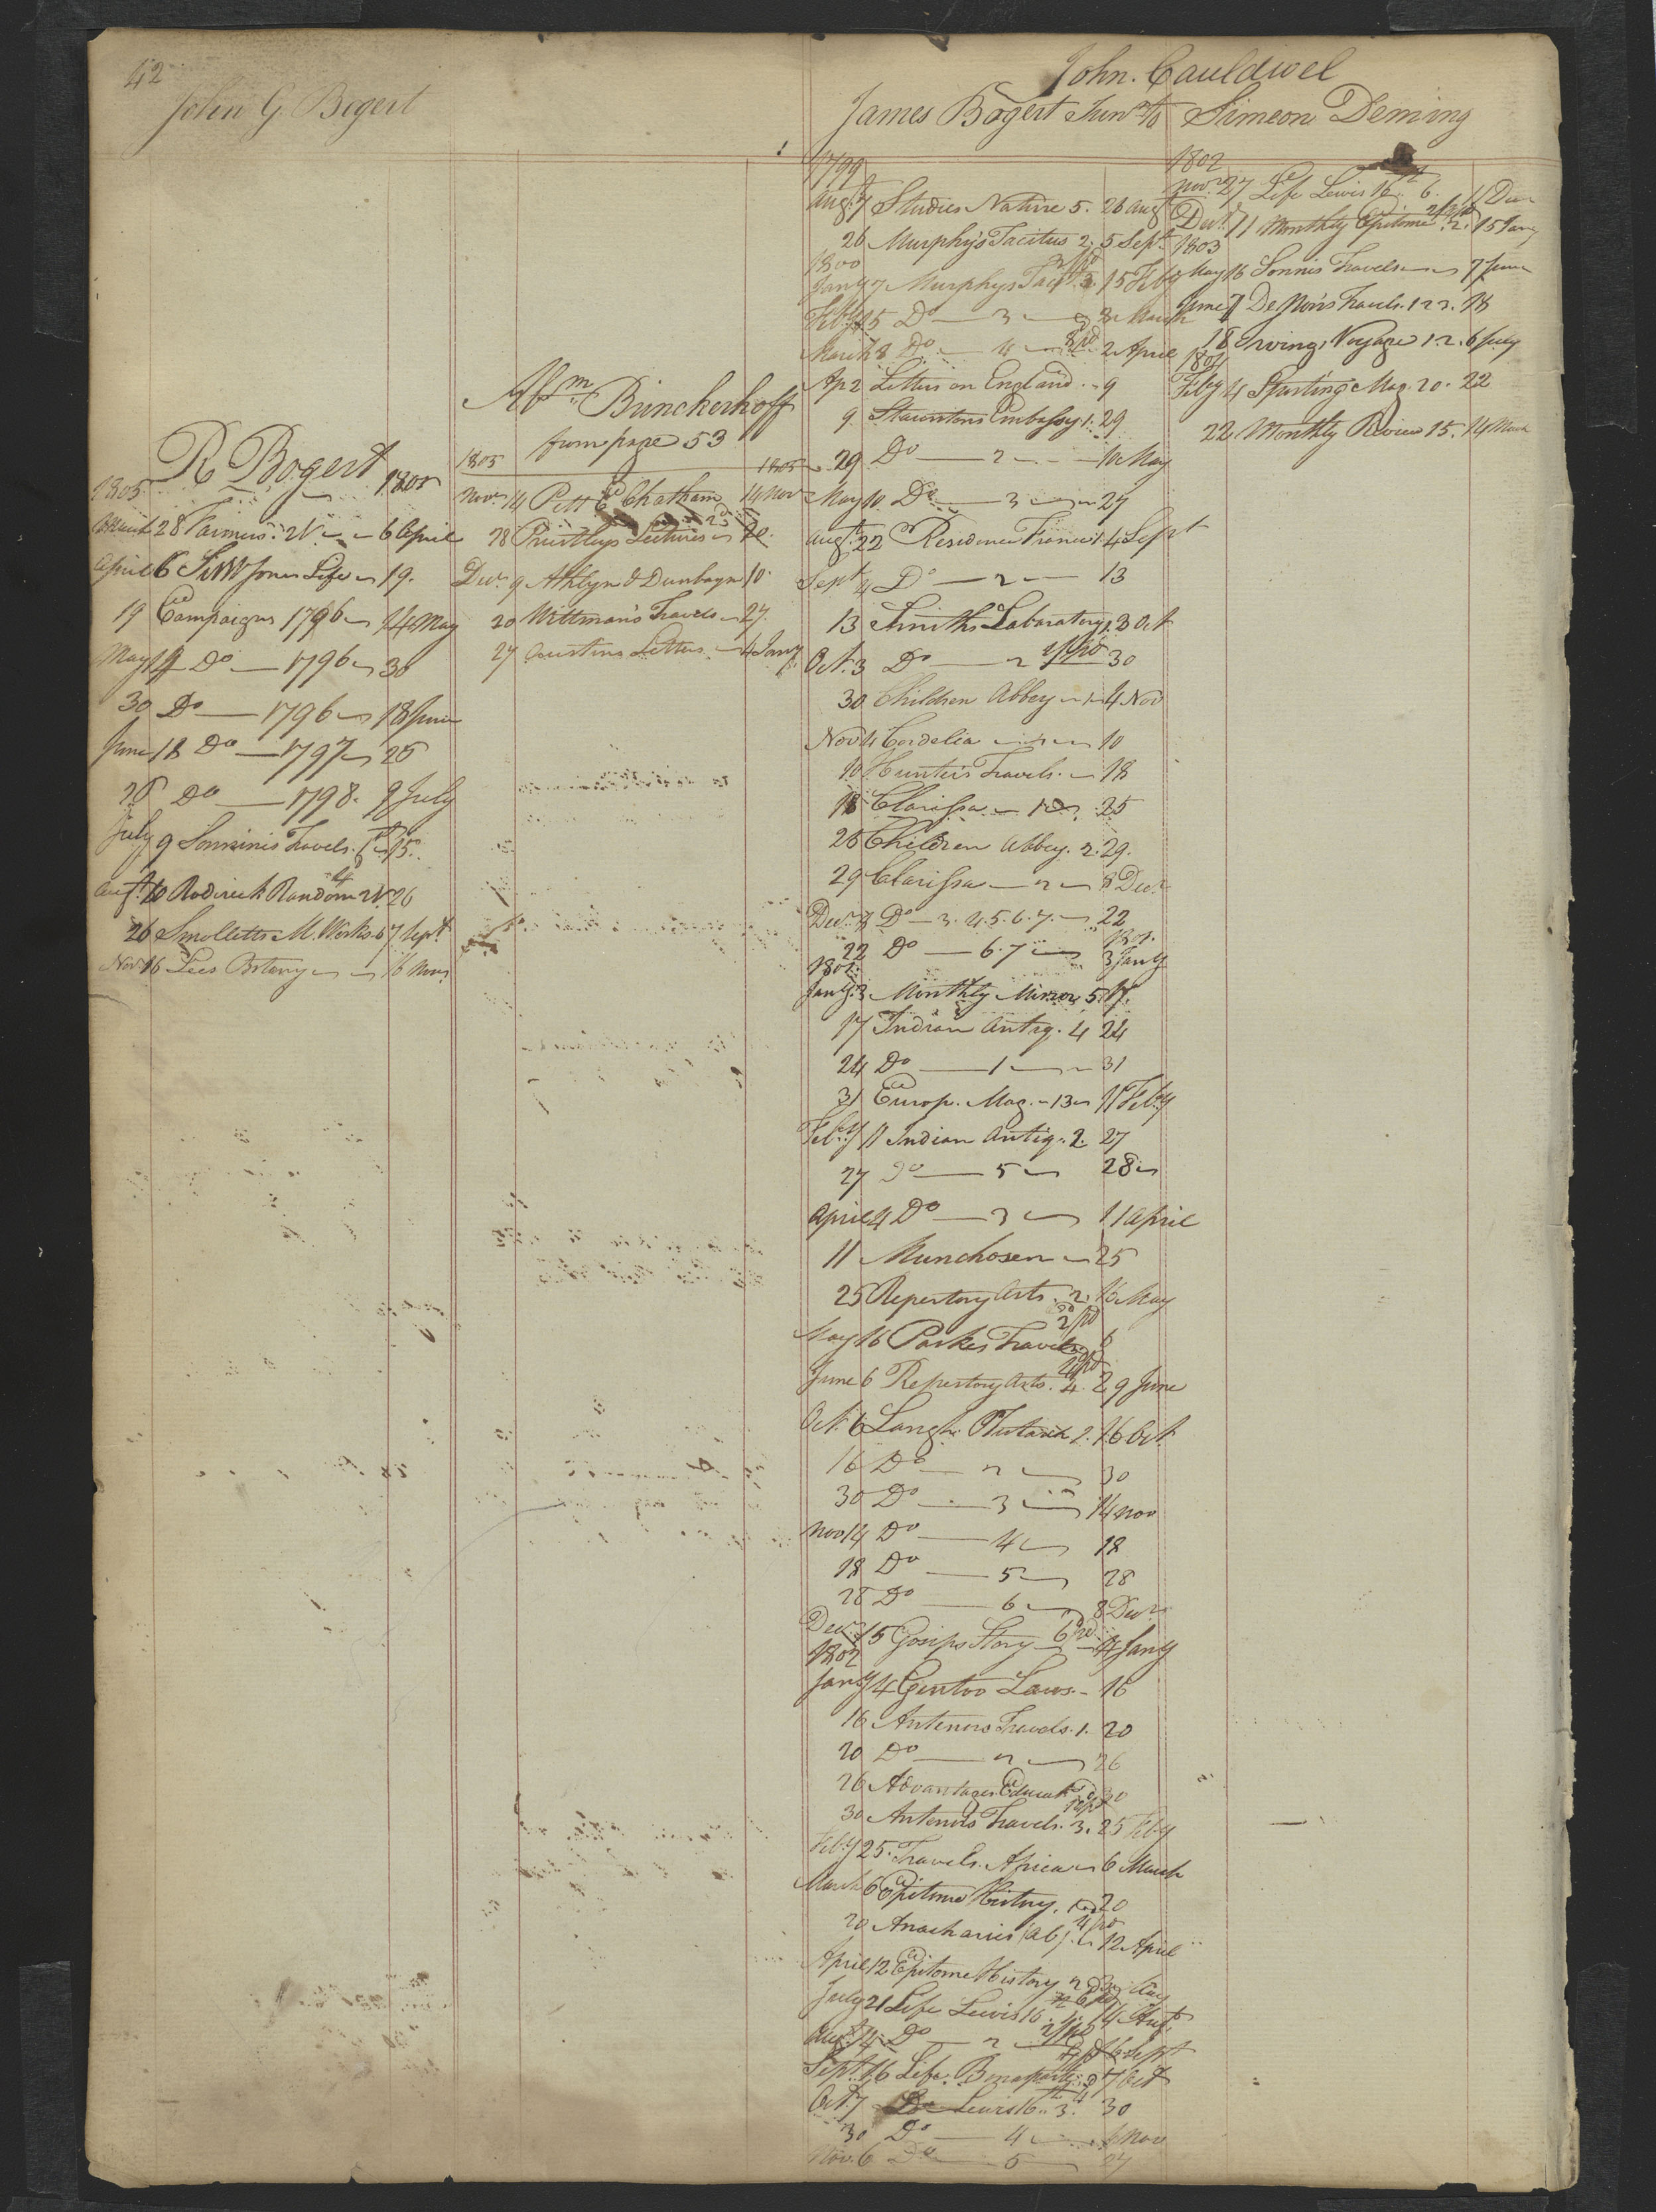 42
John G. Bogert
R Bogert
1805 1805
March 28 Farmers 2V 6 April
April 6 Sir W Jones Life 19
19 Campaigns 1796 14 May
May 14 Do 1796 30
30 Do 1796 18 June
June 18 Do 1797 25
25 Do 1798. 9 July
July 9 Sonninis Travels. 15.
Augt. 10 Roderick Random 2V. 26
26 Smolletts M. Works. 6 7 Sept.
Nov 16 Lees Botany 16 Nov.
Abm. Brinckerhoff
from page 53
1805 1805
Novr. 14 Pitt E Chatham 14 Novr
28 Priestleys Lectures Do.
Decr. 9 Athlyn & Dunbayn 10.
20 Wittman's Travels 27.
27 Austins Letters 4 Jany
John. Cauldwel
James Bogert Junr. to Simeon Deming
1799
Augt. 7 Studies Nature 5. 26 Augt
26 Murphy's Tacitus 2. 5 Sept.
1800
Jany 7 Murphys Tact. 2. 15 Feby
Feby 15 Do 3 March
March 8 Do 4 2 April
Ap 2 Letters on England 9
9. Stauntons Embassy 1. 29
29 Do 2 10 May
May 10. Do 3 27
Augt. 22 Residence France 1. 4 Sept
Sept 4 Do 2 13
13 Smiths Laboratory 1. 3 Oct
Oct. 3 Do 2 30
30 Children Abbey 1 4 Nov
Nov 4 Cordelia 10
10 Hunters Travels. 18
18 Clarissa 1 25
25 Children Abbey. 2. 29.
29 Clarissa 2 8 Decr.
Decr. 8 Do 3. 4. 5. 6. 7. 22
1801.
22 Do 6. 7 3 Jany
1801.
Jany. 3 Monthly Mirror 5 17.
17 Indian Antiq. 4 24
24 Do 1 31
31 Europ. Mag. 13 11 Feby
Feby 11 Indian Antiq. 2. 27
27 Do 5 28
April 4 Do 3 11 April
11 Munchosen 25
25 Repertory Arts 2. 16 May
May 16 Parkes Travels 6
June 6 Repertory Arts. 4. 29 June
Oct. 6 Langh. Plutarch 1. 16 Oct.
16 Do 2 30
30 Do 3 14 Nov
Nov 14 Do 4 18
18 Do 5 28
28 Do 6 8 Decr.
Decr. 15 Gosips Story 4 Jany
1802
Jany 4 Gentoo Laws. 16
16 Antenors Travels. 1. 20
20 Do 2 26
26 Advantages Educat. 30
30 Antenors Travels. 3. 25 Feby
Feby 25. Travels. Africa 6 March
March 6 Epitome History. 1 20
20 Anacharsis (Ab) 12 April
April 12 Epitome History 2 May
July 21 Life Lewis 16. 1. 14 Augt.
Augt. 14 Do 2 16 Sept
Sept. 16 Life Bonaparte 7 Oct
Oct. 7 Do Lewis 16. 3. 30
30 Do 4 6 Nov
Nov. 6 Do 5 27
1802
Novr. 27 Life Lewis 16th 6. 11 Decr
Decr. 11 Monthly Epitome 2. 15 Jany
1803
May 16 Sonnis Travels 7 June
June 7 De Nons Travels. 1 2 3. 18
18 Irving's Voyage 1. 2. 6 July
Feby 4 Sporting Mag. 20. 22
22. Monthly Review 15. 14 March